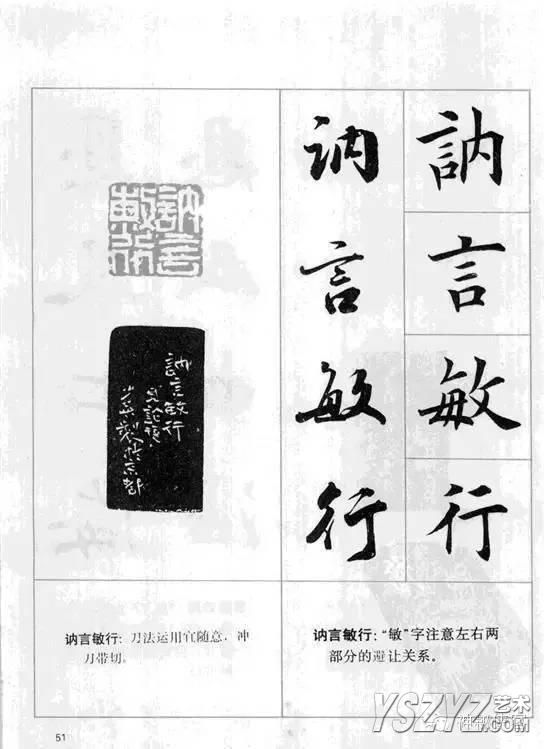 訥言敏行
訥言敏行
訥言
敏行
訥言敏行
讷言敏行：刀法运用宜随意，冲
刀带切。
讷言敏行：“敏”字注意左右两
部分的避让关系。
51
YSZYZ艺术
.COM